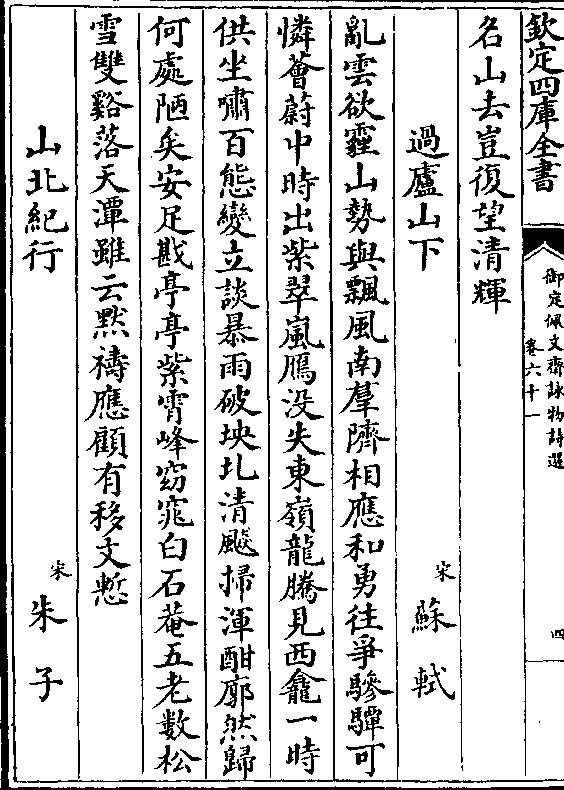 欽定四庫全書
御定佩文齋詠物詩選
卷六十一
四
名山去豈復望清輝
過廬山下
宋 蘇軾
亂雲欲霾山勢與飄風南羣隮相應和勇往爭驂驔可
憐薈蔚中時出紫翠嵐鴈没失東嶺龍騰見西龕一時
供坐嘯百態變立談暴雨破坱圠清飈掃渾酣廓然歸
何處陋矣安足戡亭亭紫霄峰窈窕白石菴五老數松
雪雙谿落天潭雖云默禱應顧有移文慙
山北紀行
宋 朱子